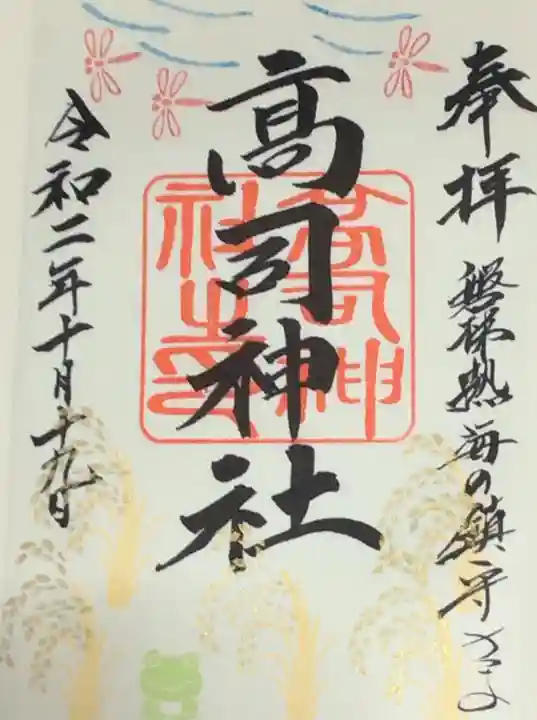 奉拝
磐梯熱海の鎮守さま
高司神社
高司神社之印
令和二年十月十九日